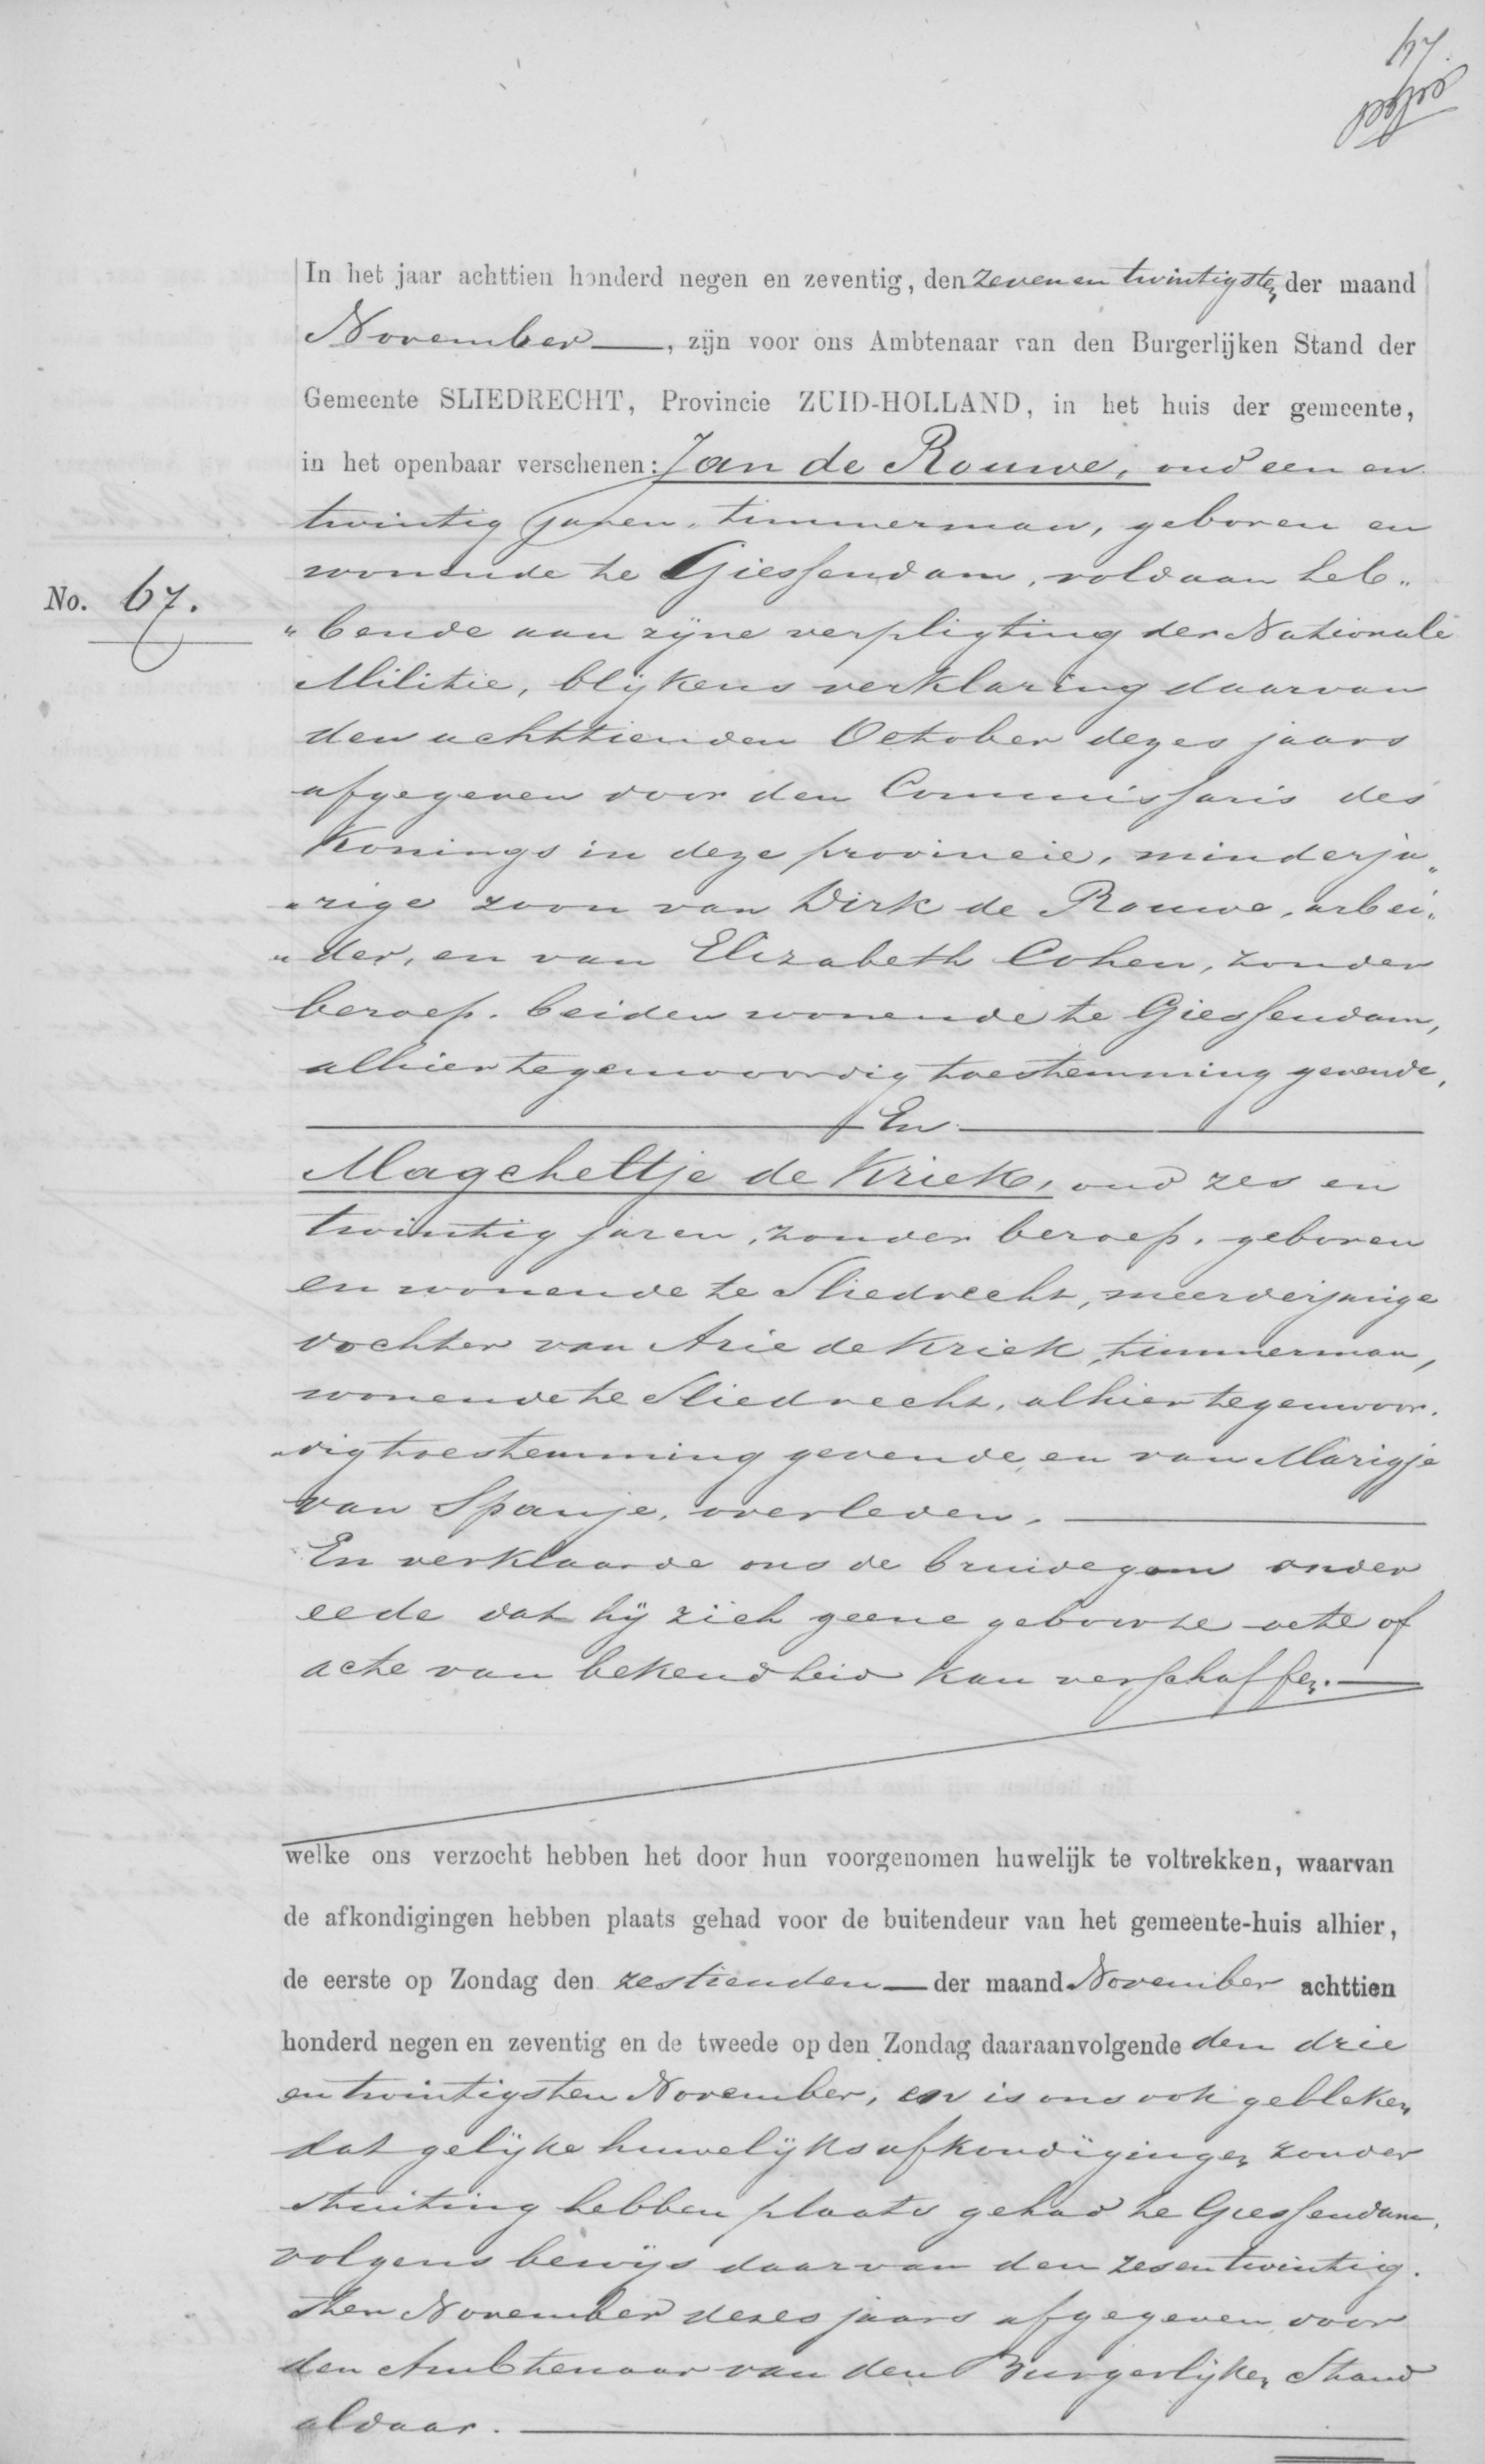 67.
In het jaar achttien honderd negen en zeventig, den zeven en twintigsten der maand
November —, zijn voor ons Ambtenaar van den Burgerlijken Stand der
Gemeente SLIEDRECHT, Provincie ZUID-HOLLAND, in het huis der gemeente,
in het openbaar verschenen: Jan de Rouwe, oud een en
twintig jaren, timmerman, geboren en
wonende te Giessendam, voldaan heb„
No. 67.
„bende aan zijne verpligting der Nationale
Militie, blijkens verklaring daarvan
den achttienden October dezes jaars
afgegeven door den Commissaris des
Konings in deze provincie, minderja„
„rige zoon van Dirk de Rouwe, arbei„
„der, en van Elizabeth Cohen, zonder
beroep, beiden wonende te Giessendam,
alhier tegenwoordig toestemming gevende,
— En —
Magcheltje de Kriek, oud zes en
twintig jaren, zonder beroep, geboren
en wonende te Sliedrecht, meerderjarige
dochter van Arie de Kriek, timmerman,
wonende te Sliedrecht, alhier tegenwoor„
„dig toestemming gevende, en van Marigje
van Spanje, overleden. —
En verklaarde ons de bruidegom onder
eede dat hij zich geene geboorte acte of
acte van bekendheid kan verschaffen. —
welke ons verzocht hebben het door hun voorgenomen huwelijk te voltrekken, waarvan
de afkondigingen hebben plaats gehad voor de buitendeur van het gemeente-huis alhier,
de eerste op Zondag den zestienden — der maand November achttien
honderd negen en zeventig en de tweede op den Zondag daaraanvolgende den drie
en twintigsten November, en is ons ook gebleken
dat gelijke huwelijksafkondigingen zonder
stuiting hebben plaats gehad te Giessendam,
volgens bewijs daarvan den zesentwintig„
sten November dezes jaars afgegeven door
den Ambtenaar van den Burgerlijken Stand
aldaar. —